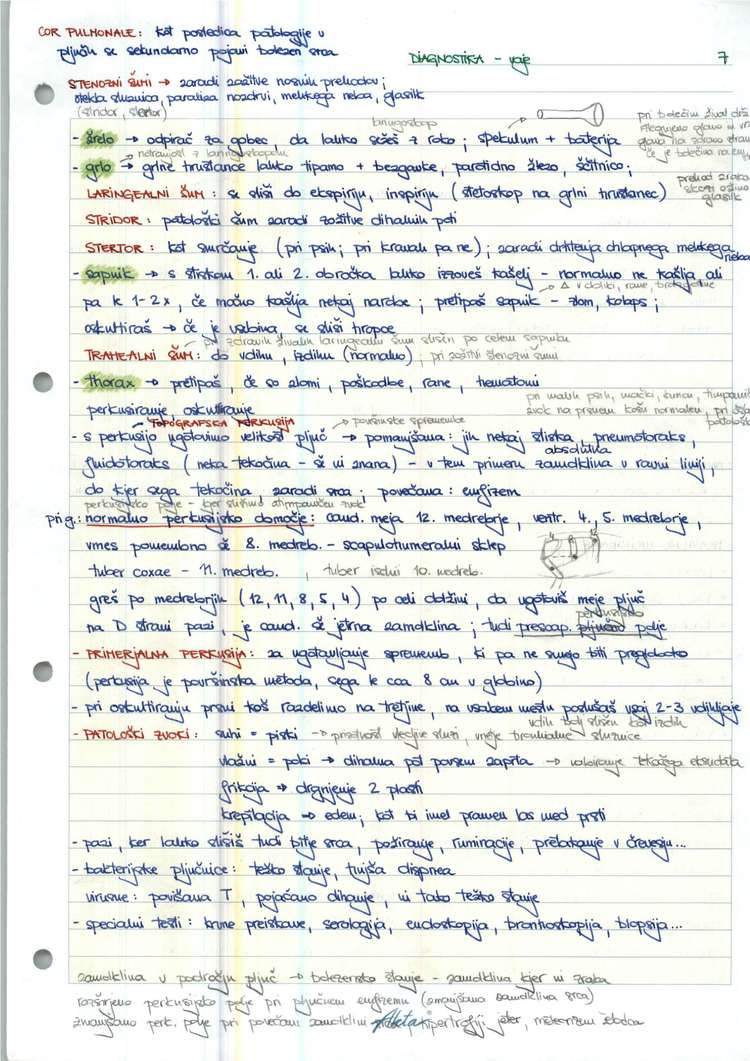 COR PULMONALE: kot posledica patologije v
pljučih se sekundarno pojavi bolezen srca
DIAGNOSTIKA - vaje
7
STENOZNI ŠUMI → zaradi zožitve nosnih prehodov;
otekla sluznica, paraliza nozdrvi, mehkega neba, glasilk
(stridor, stertor)
laringoskop
pri bolečini žival drži
iztegnjeno glavo in vrat
- žrelo → odpirač za gobec, da lahko sežeš z roko; spekulum + baterija
glava na zdravo stran
če je bolečina na eni
notranjost z laringoskopom
- grlo → grlne hrustance lahko tipamo + bezgavke, parotidno žlezo, ščitnico;
prehod zraka
skozi ožino
glasilk
LARINGEALNI ŠUM: se sliši do ekspiriju, inspiriju (stetoskop na grlni hrustanec)
STRIDOR: patološki šum zaradi zožitve dihalnih poti
STERTOR: kot smrčanje (pri psih; pri kravah pa ne); zaradi drhtenja ohlapnega mehkega neba
- sapnik → s stiskom 1. ali 2. obročka lahko izzoveš kašelj - normalno ne kašlja ali
v obliki, rane,
pa le 1-2x, če močno kašlja nekaj narobe; pretipaš sapnik - zlom, kolaps;
oskultiraš → če je vsebina, se sliši hropce
pri zdravih živalih laringealni šum slišen po celem sapniku
TRAHEALNI ŠUM: do vdihu, izdihu (normalno); pri zožitvi stenozni šumi
- thorax → pretipaš, če so zlomi, poškodbe, rane, hematomi
pri malih psih, mački, kuncu, timpanični
zvok na prsnem košu normalen, pri
patološki
perkusiranje, oskultiranje
TOPOGRAFSKA PERKUSIJA → površinske spremembe
- s perkusijo ugotovimo velikost pljuč → pomanjšana: jih nekaj stiska, pneumotoraks,
absolutna
fluidotoraks (neka tekočina - še ni znana) - v tem primeru zamolklina v ravni liniji,
do kjer sega tekočina, zaradi srca; povečana: emfizem
perkusijsko polje - kjer slišimo atimpanični zvok
pri g.: normalno perkusijsko območje: caud. meja 12. medrebrje, ventr. 4., 5. medrebrje,
vmes pomembno še 8. medreb. - scapulohumeralni sklep
4 8 11
tuber coxae - 11. medreb., tuber ischii 10. medreb.
greš po medrebrjih (12, 11, 8, 5, 4) po celi dolžini, da ugotoviš meje pljuč
perkusijsko
na D strani pazi, je caud. še jetrna zamolklina; tudi prescap. pljučno polje
- PRIMERJALNA PERKUSIJA: za ugotavljanje sprememb, ki pa ne smejo biti pregloboko
(perkusija je površinska metoda, sega le cca 8 cm v globino)
- pri oskultiranju prsni koš razdelimo na tretjine, na vsakem mestu poslušaš vsaj 2-3 vdihljaje
vdih bolj slišen kot izdih
- PATOLOŠKI ZVOKI: suhi = piski → prisotnost vlečljive sluzi, vnetje bronhialne sluznice
vlažni = poki → dihalna pot povsem zaprta → valoviranje tekočega eksudata
frikcija → drgnjenje 2 plasti
krepitacija → edem; kot bi imel pramen las med prsti
- pazi, ker lahko slišiš tudi bitje srca, požiranje, ruminacije, pretakanje v črevesju...
- bakterijske pljučnice: težko stanje, hujša dispnea
virusne: povišana T, pojačano dihanje, ni tako težko stanje
- specialni testi: krvne preiskave, serologija, endoskopija, bronhoskopija, biopsija...
zamolklina v področju pljuč → bolezensko stanje - zamolklina kjer ni zraka
razširjeno perkusijsko polje pri pljučnem emfizemu (zmanjšano zamolklina srca)
zmanjšano perk. polje pri povečani zamolklini hipertrofiji jeter, meteorizem želodca